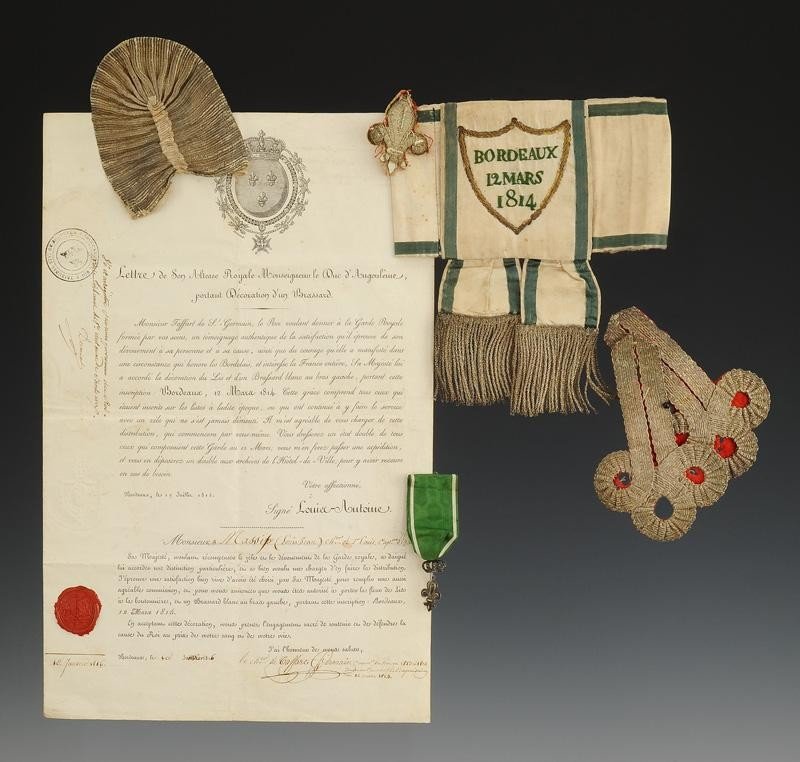 BORDEAUX
12 MARS
1814
Lettre de Son Altesse Royale Monseigneur le Duc d'Angoulême,
portant Décoration d'un Brassard.
Monsieur Taffart de St. Germain, le Roi voulant donner à la Garde Royale
formée par vos soins, un témoignage authentique de la satisfaction qu'il éprouve de son
dévouement à sa personne et à sa cause, ainsi que du courage qu'elle a manifesté dans
une circonstance qui honore les Bordelais, et intéresse la France entière, Sa Majesté lui
a accordé la décoration du Lis et d'un Brassard blanc au bras gauche, portant cette
inscription Bordeaux, 12 Mars 1814. Cette grace comprend tous ceux qui
étaient inscrits sur les listes à ladite époque, ou qui ont continué à y faire le service
avec un zèle qui ne s'est jamais démenti. Il m'est agréable de vous charger de cette
distribution, qui commencera par vous-même. Vous dresserez un état double de tous
ceux qui composaient cette Garde au 12 Mars, vous m'en ferez passer une expédition,
et vous en déposerez un double aux archives de l'Hôtel-de-Ville, pour y avoir recours
en cas de besoin.
Votre affectionné,
Bordeaux, le
Signé Louis-Antoine.
Monsieur Massip
Sa Majesté, voulant récompenser le zèle et le dévouement de ses Gardes royales, a daigné
lui accorder une distinction particulière, et a bien voulu me charger d'en faire la distribution.
J'éprouve une satisfaction bien vive d'avoir été choisi par Sa Majesté pour remplir une aussi
agréable commission, et pour vous annoncer que vous êtes autorisé à porter la fleur de Lis
à la boutonnière, et un Brassard blanc au bras gauche, portant cette inscription Bordeaux,
12 Mars 1814.
En acceptant cette décoration, vous prenez l'engagement sacré de soutenir et de défendre la
cause du Roi au prix de votre sang et de votre vie.
J'ai l'honneur de vous saluer,
Bordeaux, le